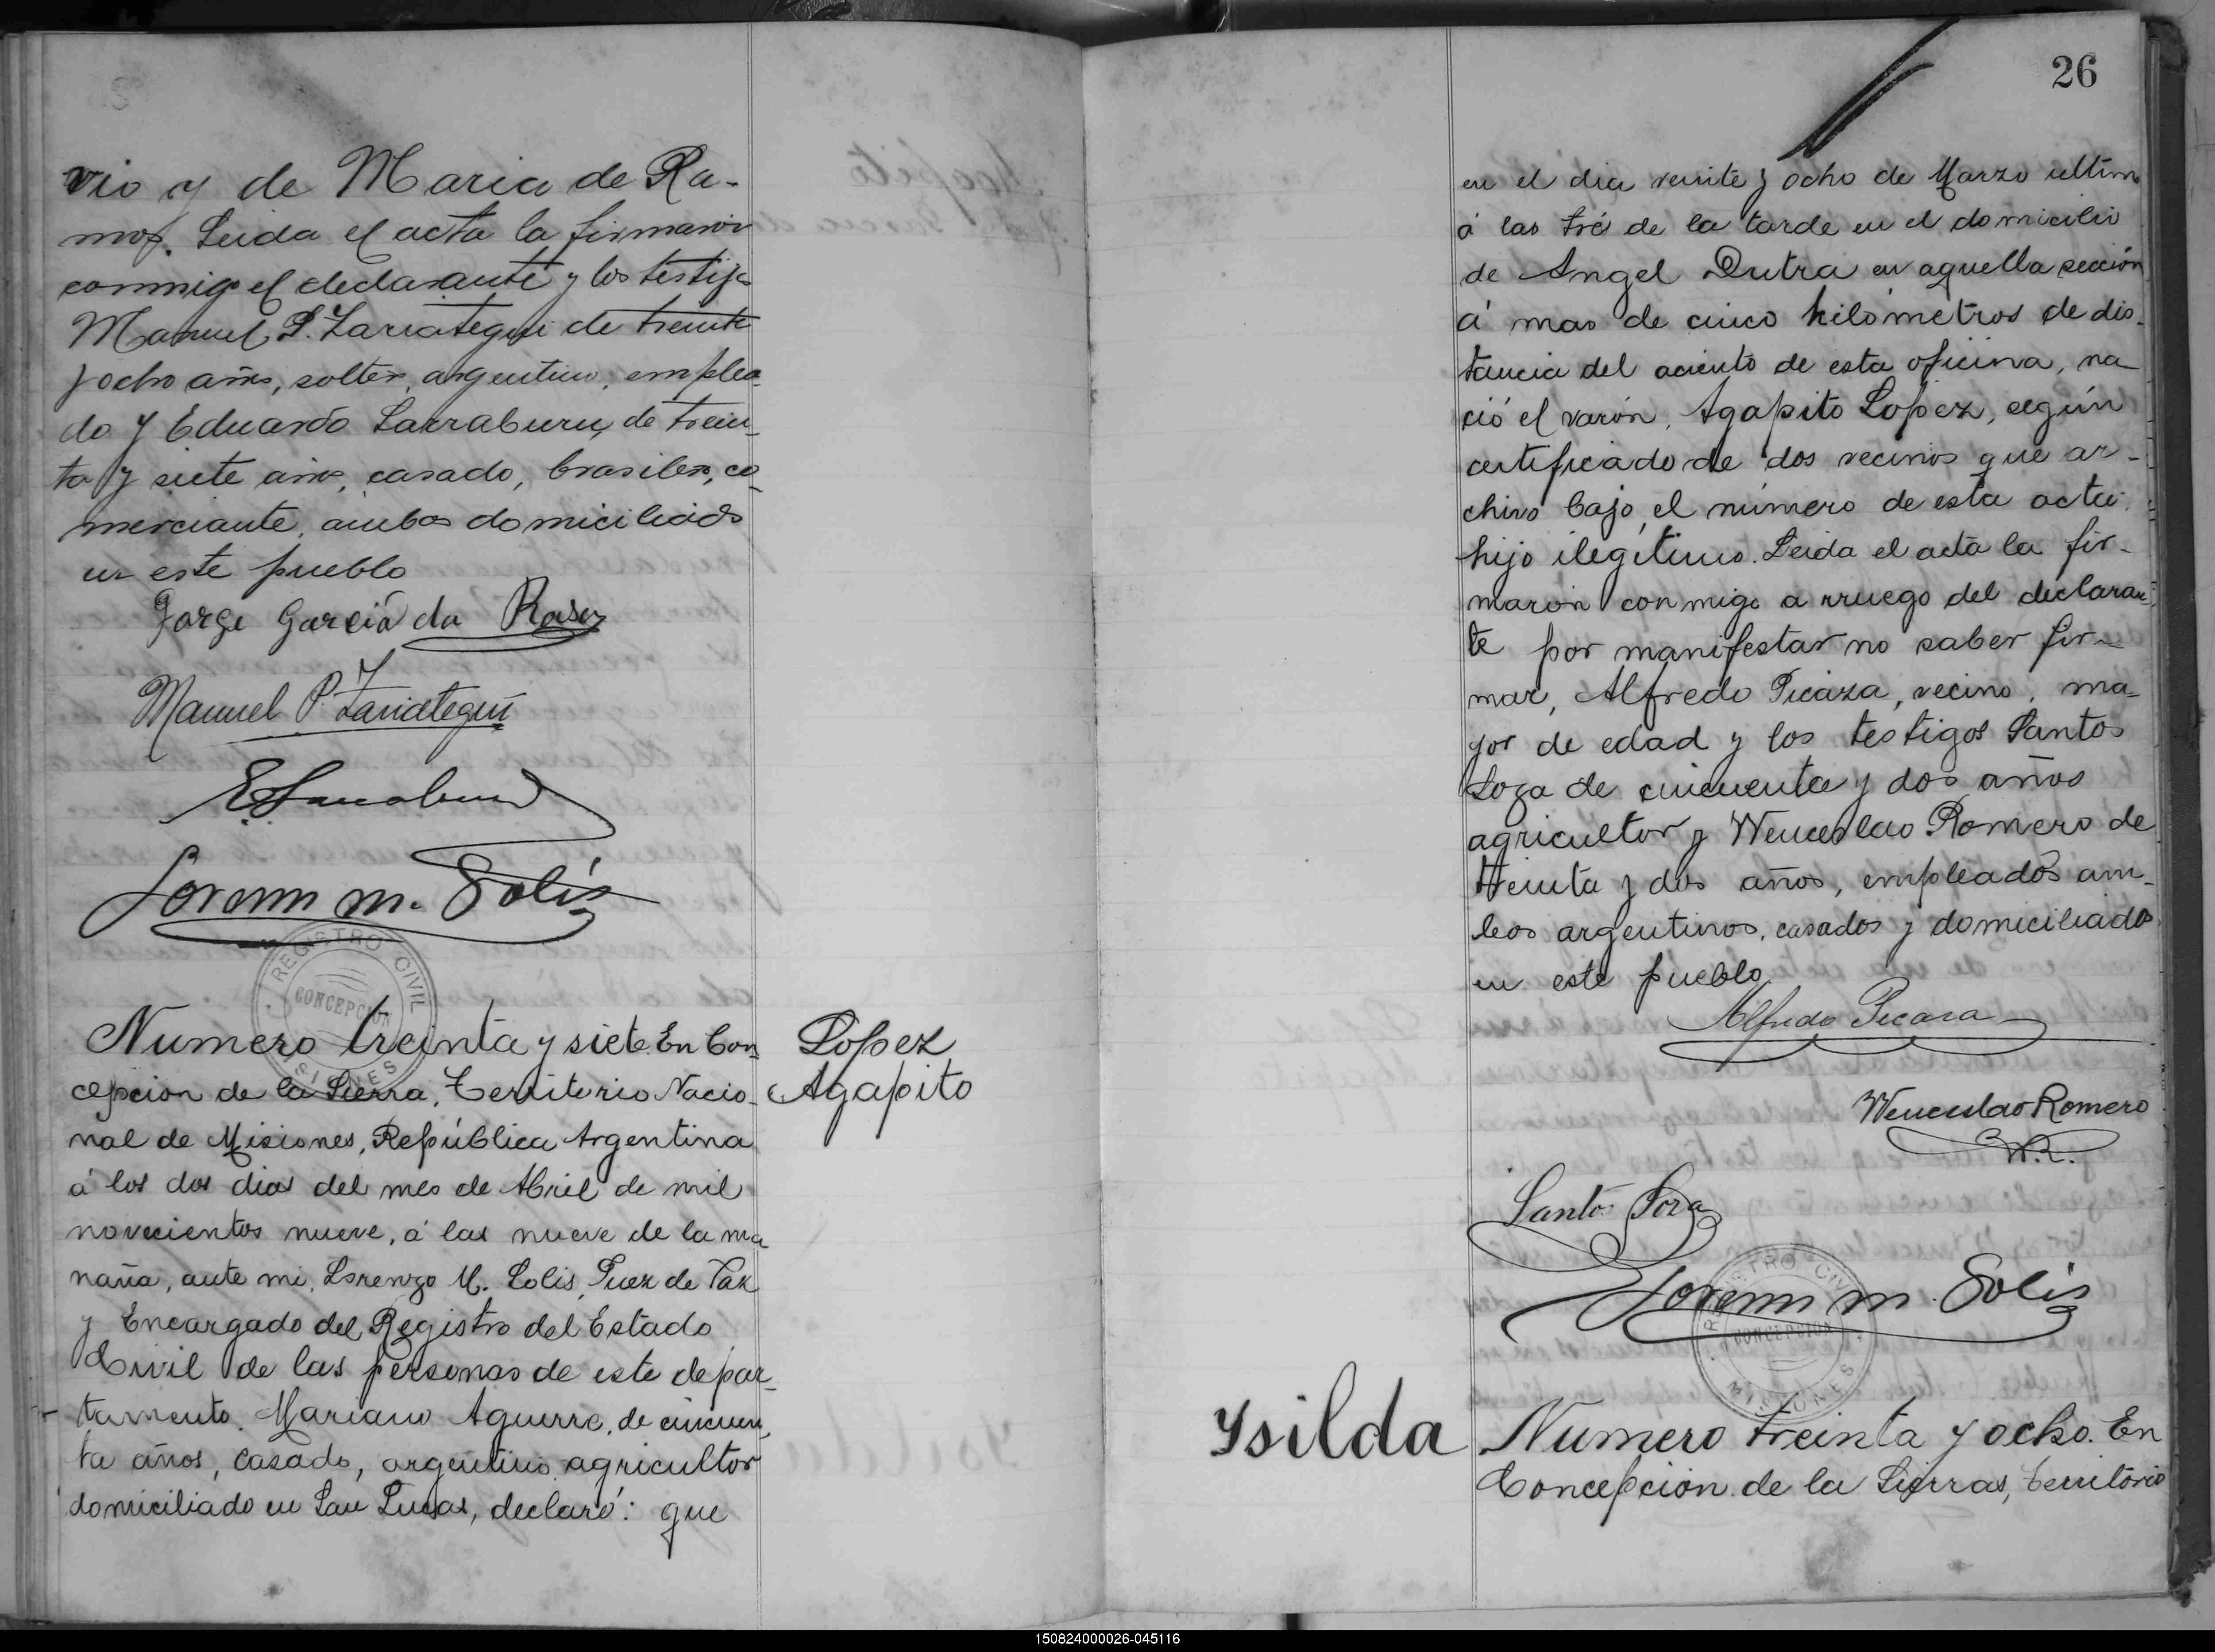 vio y de Maria de Ra-
mos. Leida el acta la firmaron
conmigo el declarante y los testigos
Manuel P. Zariategui de treinta
y ocho años, soltero, argentino, emplea-
do y Eduardo Larraburu, de trein-
ta y siete años, casado, brasilero, co-
merciante, ambos domiciliados
en este pueblo
Jorge Garcia da Rosa
Manuel P. Zariategui
E Larraburu
Lorenzo M. Solis
REGISTRO CIVIL
CONCEPCION
MISIONES
Numero treinta y siete. En Con-
cepcion de la Sierra, Territorio Nacio-
nal de Misiones, República Argentina
á los dos dias del mes de Abril de mil
novecientos nueve, á las nueve de la ma
ñana, ante mi, Lorenzo M. Solis, Juez de Paz
y Encargado del Registro del Estado
Civil de las personas de este depar-
tamento. Mariano Aguirre, de cincuen-
ta años, casado, argentino, agricultor
domiciliado en San Lucas, declaró: que
Lopez
Agapito
26
en el dia veinte y ocho de Marzo ultimo
á las tres de la tarde en el domicilio
de Angel Dutra en aquella sección
á mas de cinco kilómetros de dis-
tancia del aciento de esta oficina, na-
ció el varón, Agapito Lopez, según
certificado de dos vecinos que ar-
chivo bajo el número de esta acta,
hijo ilegítimo. Leida el acta la fir-
maron conmigo a rruego del declaran-
te por manifestar no saber fir-
mar, Alfredo Picaza, vecino, ma-
yor de edad y los testigos Santos
Loza de cincuenta y dos años
agricultor y Wenceslao Romero de
treinta y dos años, empleados am-
bos argentinos, casados y domiciliados
en este pueblo
Alfredo Picaza
Wenceslao Romero
W.R.
Santos Loza
Lorenzo M. Solis
REGISTRO CIVIL
CONCEPCION
MISIONES
Ysilda
Numero treinta y ocho. En
Concepción de la Sierras, territorio
150824000026-045116